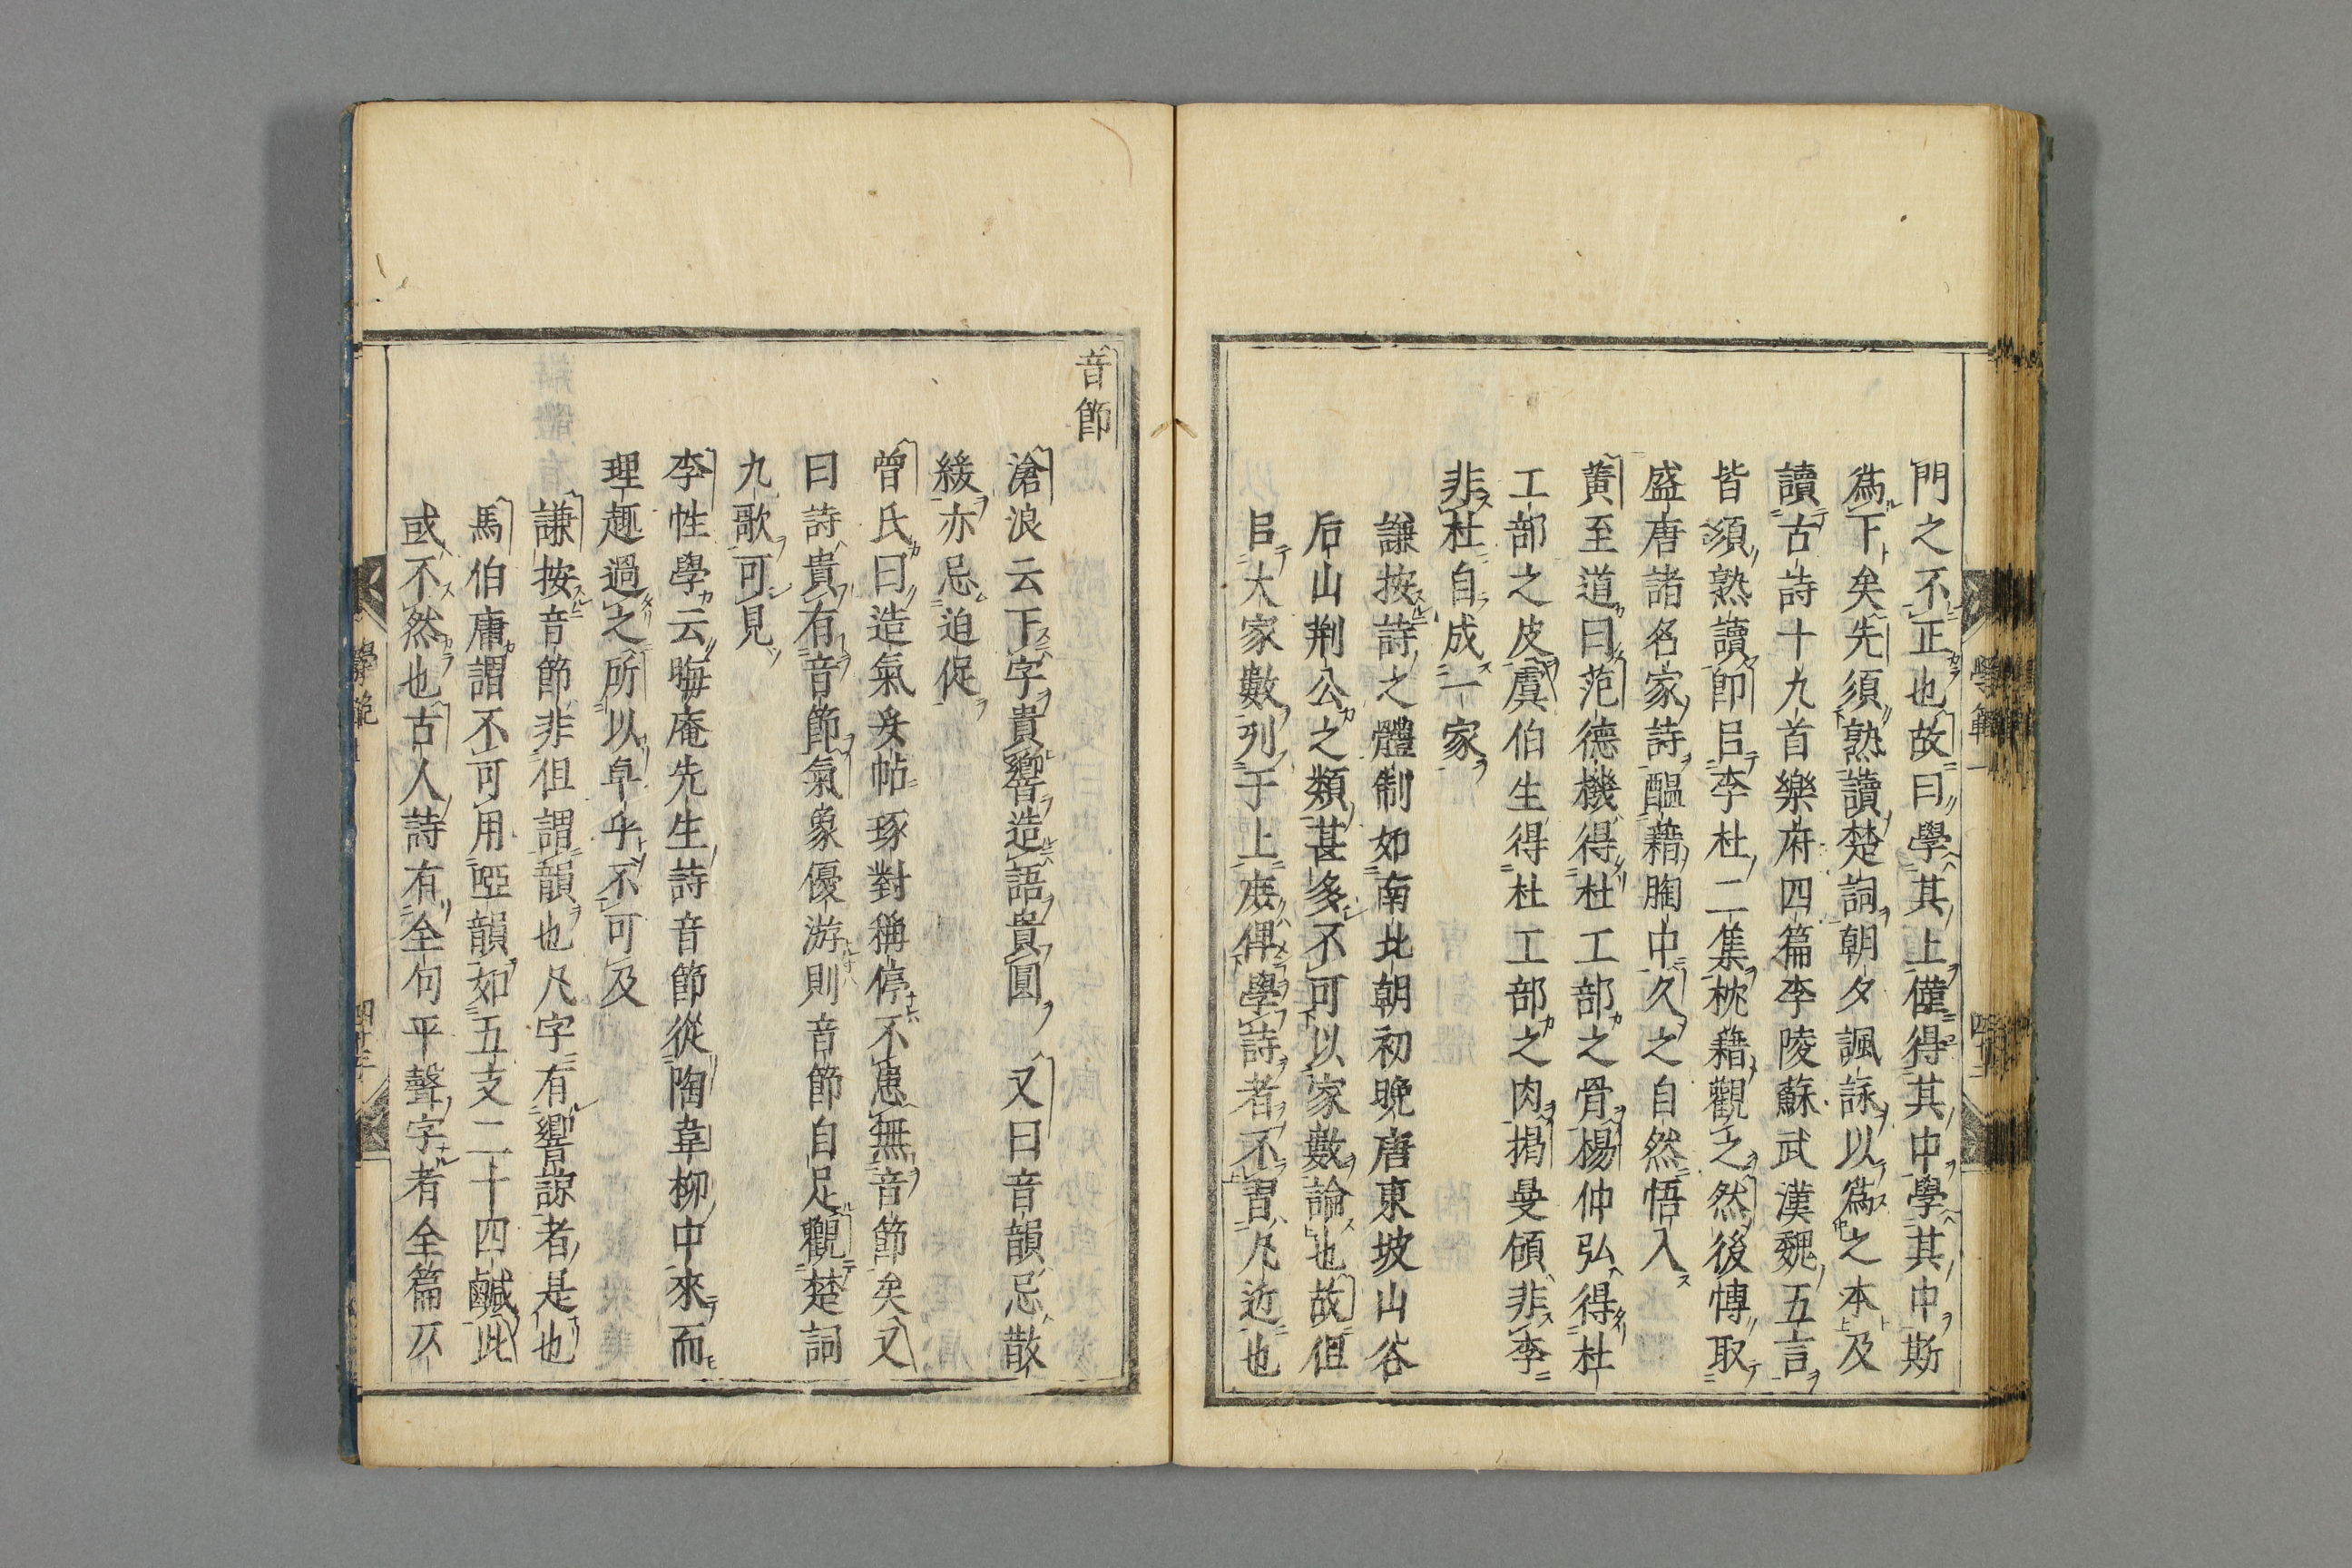 門之不正也故曰學其上僅得其中學其中斯
爲下矣先須熟讀楚詞朝夕諷詠以爲之本及
讀古詩十九首樂府四篇李陵蘇武漢魏五言
皆須熟讀即㠯李杜二集枕藉觀之然後博取
盛唐諸名家詩醞藉胸中久之自然悟入
黄至道曰范德機得杜工部之骨楊仲弘得杜
工部之皮虞伯生得杜工部之肉揭曼碩非李
非杜自成一家
謙按詩之體制如南北朝初晚唐東坡山谷
后山荆公之類甚多不可以家數論也故但
㠯大家數列于上庻俾學詩者不習凡近也
音節
滄浪云下字貴響造語貴圓又曰音韻忌散
緩亦忌迫促
曾氏曰造氣妥帖琢對稱停不患無音節矣又
曰詩貴有音節氣象優游則音節自足觀楚詞
九歌可見
李性學云晦庵先生詩音節從陶韋柳中來而
理趣過之所以卓乎不可及
謙按音節非但謂韻也凡字有響諒者是也
馬伯庸謂不可用啞韻如五支二十四鹹此
或不然也古人詩有全句平聲字者全篇仄